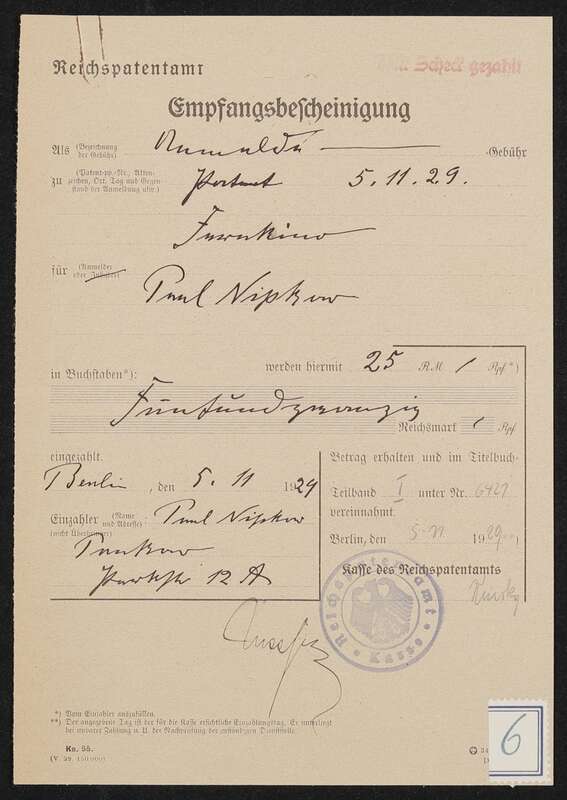 Scheck gezahlt
Reichspatentamt
Empfangsbescheinigung
Als (Bezeichnung der Gebühr) Anmelde -Gebühr
zu (Patent-pp.-Nr., Aktenzeichen, Ort, Tag und Gegenstand der Anmeldung usw.) Patent 5.11.29.
Fernkino
für (Anmelder oder Inhaber) Paul Nipkow
werden hiermit 25 R.M / Rpf*)
in Buchstaben*):
Fünfundzwanzig
Reichsmark / Rpf
eingezahlt.
Berlin, den 5. 11 1929
Einzahler (Name und Adresse): Paul Nipkow
(nicht Überbringer)
Pankow
Parkstr 12 A
Betrag erhalten und im Titelbuch-
Teilband I unter Nr. 6427
vereinnahmt.
Berlin, den 5. 11 1929**)
Kasse des Reichspatentamts
Reichspatentamt Kasse
*) Vom Einzahler auszufüllen.
**) Der angegebene Tag ist der für die Kasse ersichtliche Einzahlungstag. Er unterliegt
bei unbarer Zahlung u. U. der Nachprüfung der zuständigen Dienststelle.
Ka. 55.
6